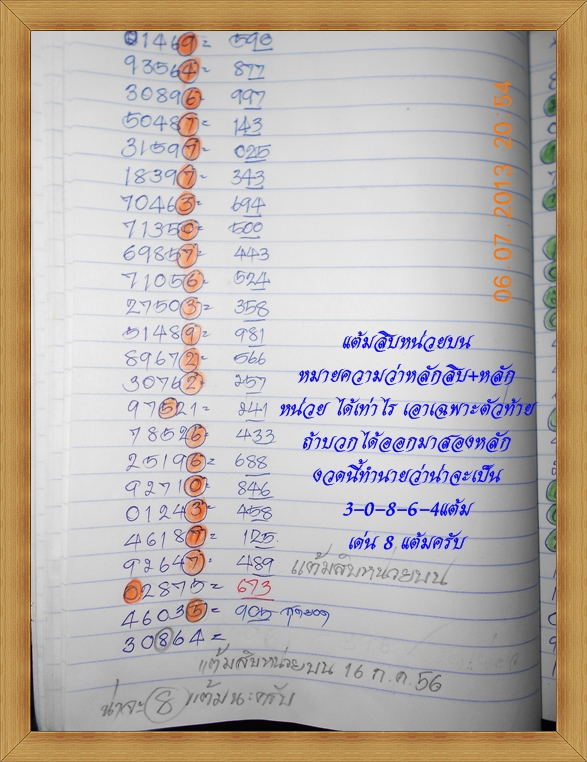 01469= 590
93564= 877
30896= 997
50487= 143
31597= 025
18397= 343
70463= 694
71350= 500
69857= 443
71056= 524
27503= 358
51489= 981
89672= 566
30762= 257
97521= 241
78526= 433
25196= 688
92710= 846
01243= 458
46187= 125
92647= 489 แต้มสิบหน่วยบน
02875= 673
46035= 905
30864=
แต้มสิบหน่วยบน 16 ก.ค.56
น่าจะ 8 แต้มนะครับ
06.07.2013 20:54
แต้มสิบหน่วยบน
หมายความว่าหลักสิบ+หลัก
หน่วย ได้เท่าไร เอาเฉพาะตัวท้าย
ถ้าบวกได้ออกมาสองหลัก
งวดนี้ทำนายว่าน่าจะเป็น
3-0-8-6-4แต้ม
เด่น 8 แต้มครับ